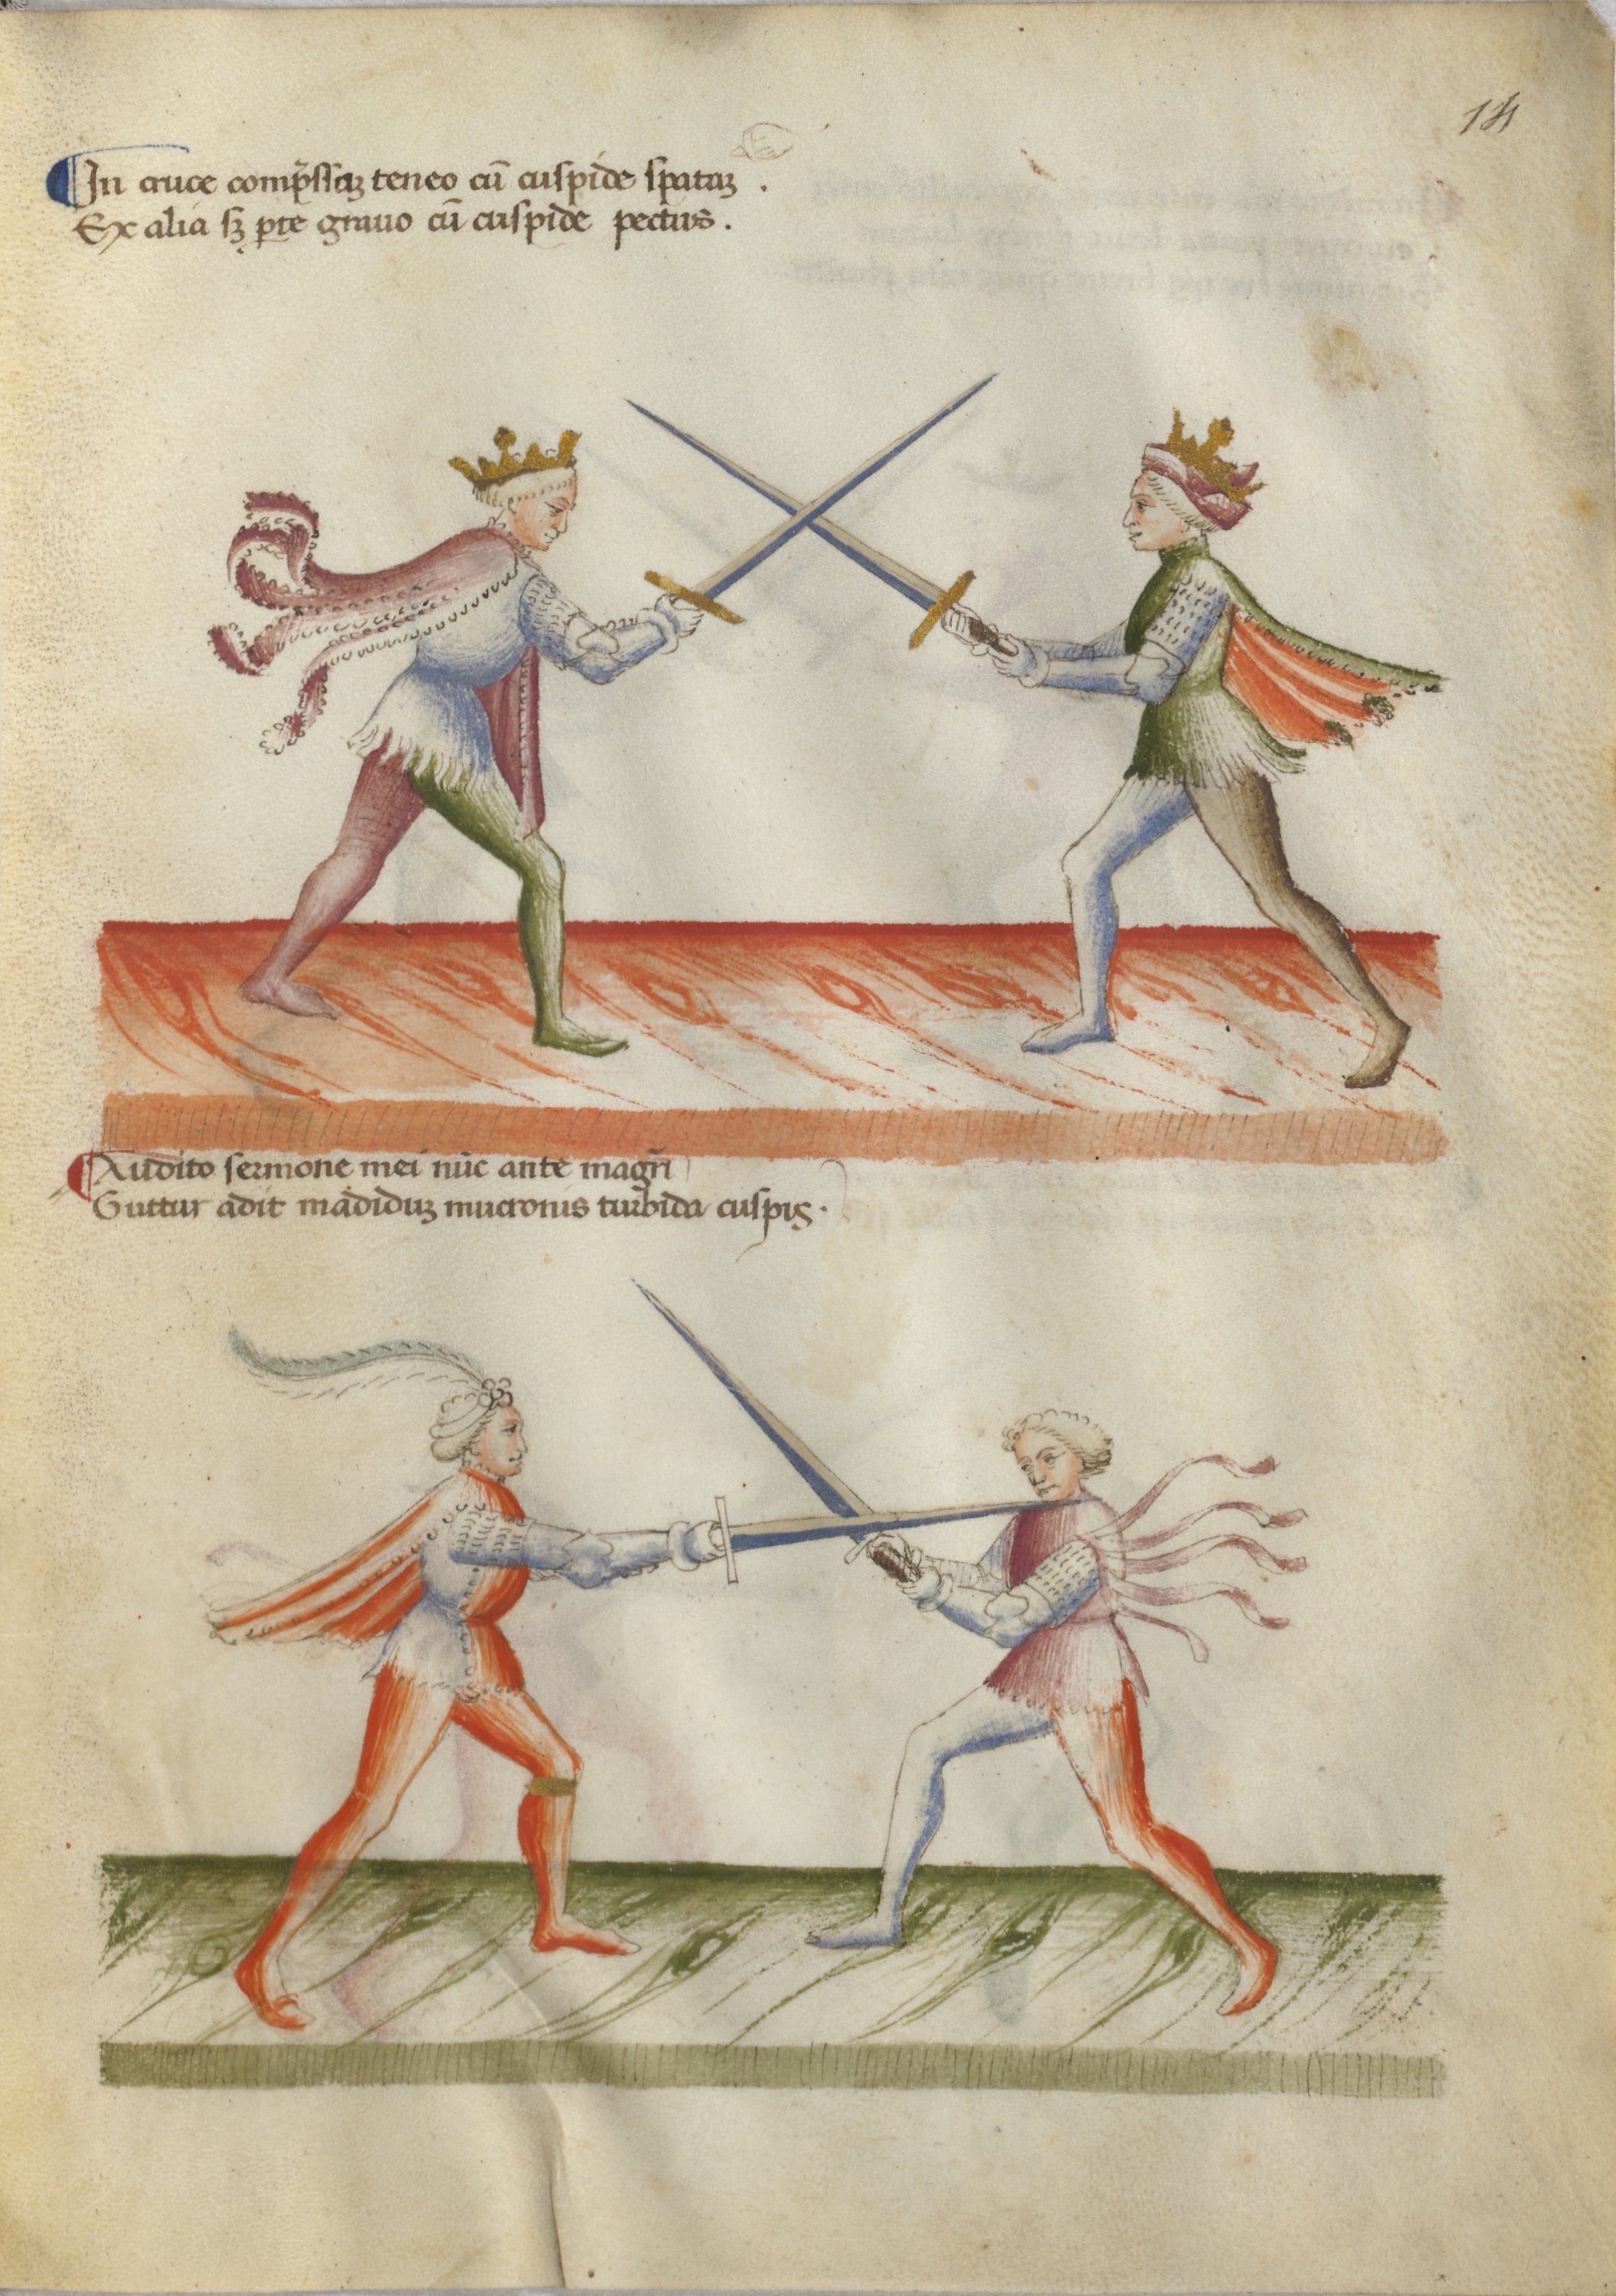 14
In cruce comp̃ssaꝫ teneo cū cuspide spataꝫ .
Ex alia sꝫ ꝑte grauo cū cuspide pectus .
Audito sermone mei nūc ante magr̄i
Guttur adit madiduꝫ mucronis turbida cuspis .